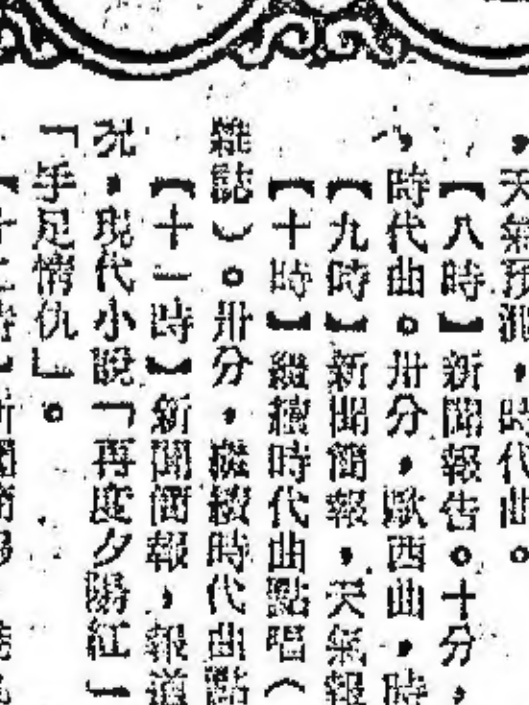 ，天氣預報，時代曲。
【八時】新聞報告。十分，
時代曲。卅分，歐西曲，時
【九時】新聞簡報，天氣報
【十時】繼續時代曲點唱（
雜誌）。卅分，繼續時代曲點
【十一時】新聞簡報，報道
况，現代小說「再度夕陽紅」
「手足情仇」。